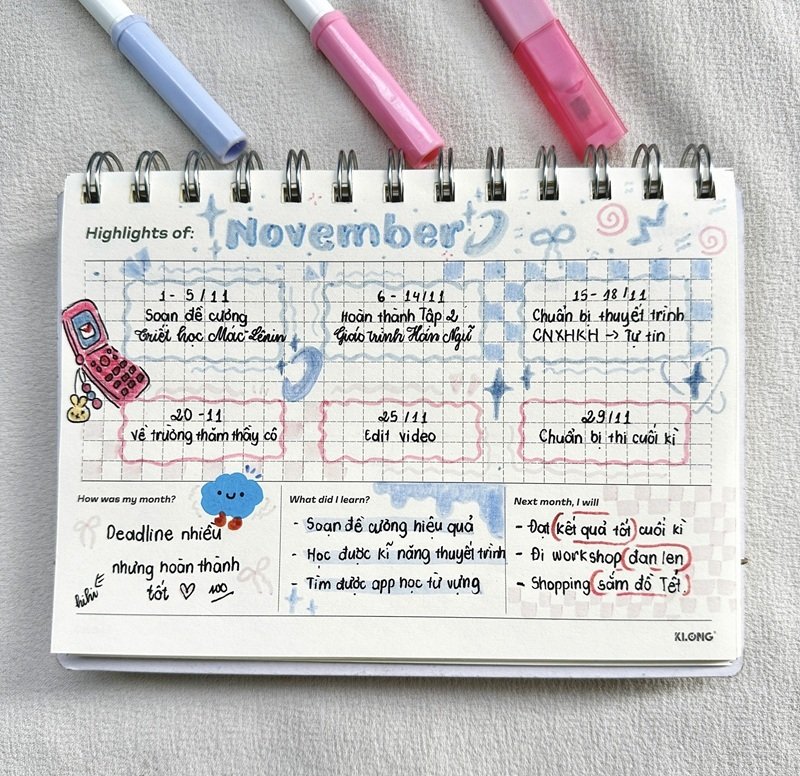 Highlights of: November
1 - 5 / 11
Soạn đề cương
Triết học Mác-Lênin
6 - 14/11
Hoàn thành Tập 2
Giáo trình Hán Ngữ
15 - 18/11
Chuẩn bị thuyết trình
CNXHKH → Tự tin
20 - 11
Về trường thăm thầy cô
25/11
Edit video
29/11
Chuẩn bị thi cuối kì
How was my month?
Deadline nhiều
nhưng hoàn thành
tốt ♡ 100
hihi
What did I learn?
- Soạn đề cương hiệu quả
- Học được kĩ năng thuyết trình
- Tìm được app học từ vựng
Next month, I will
- Đạt kết quả tốt cuối kì
- Đi workshop đan len
- Shopping sắm đồ Tết
KLONG